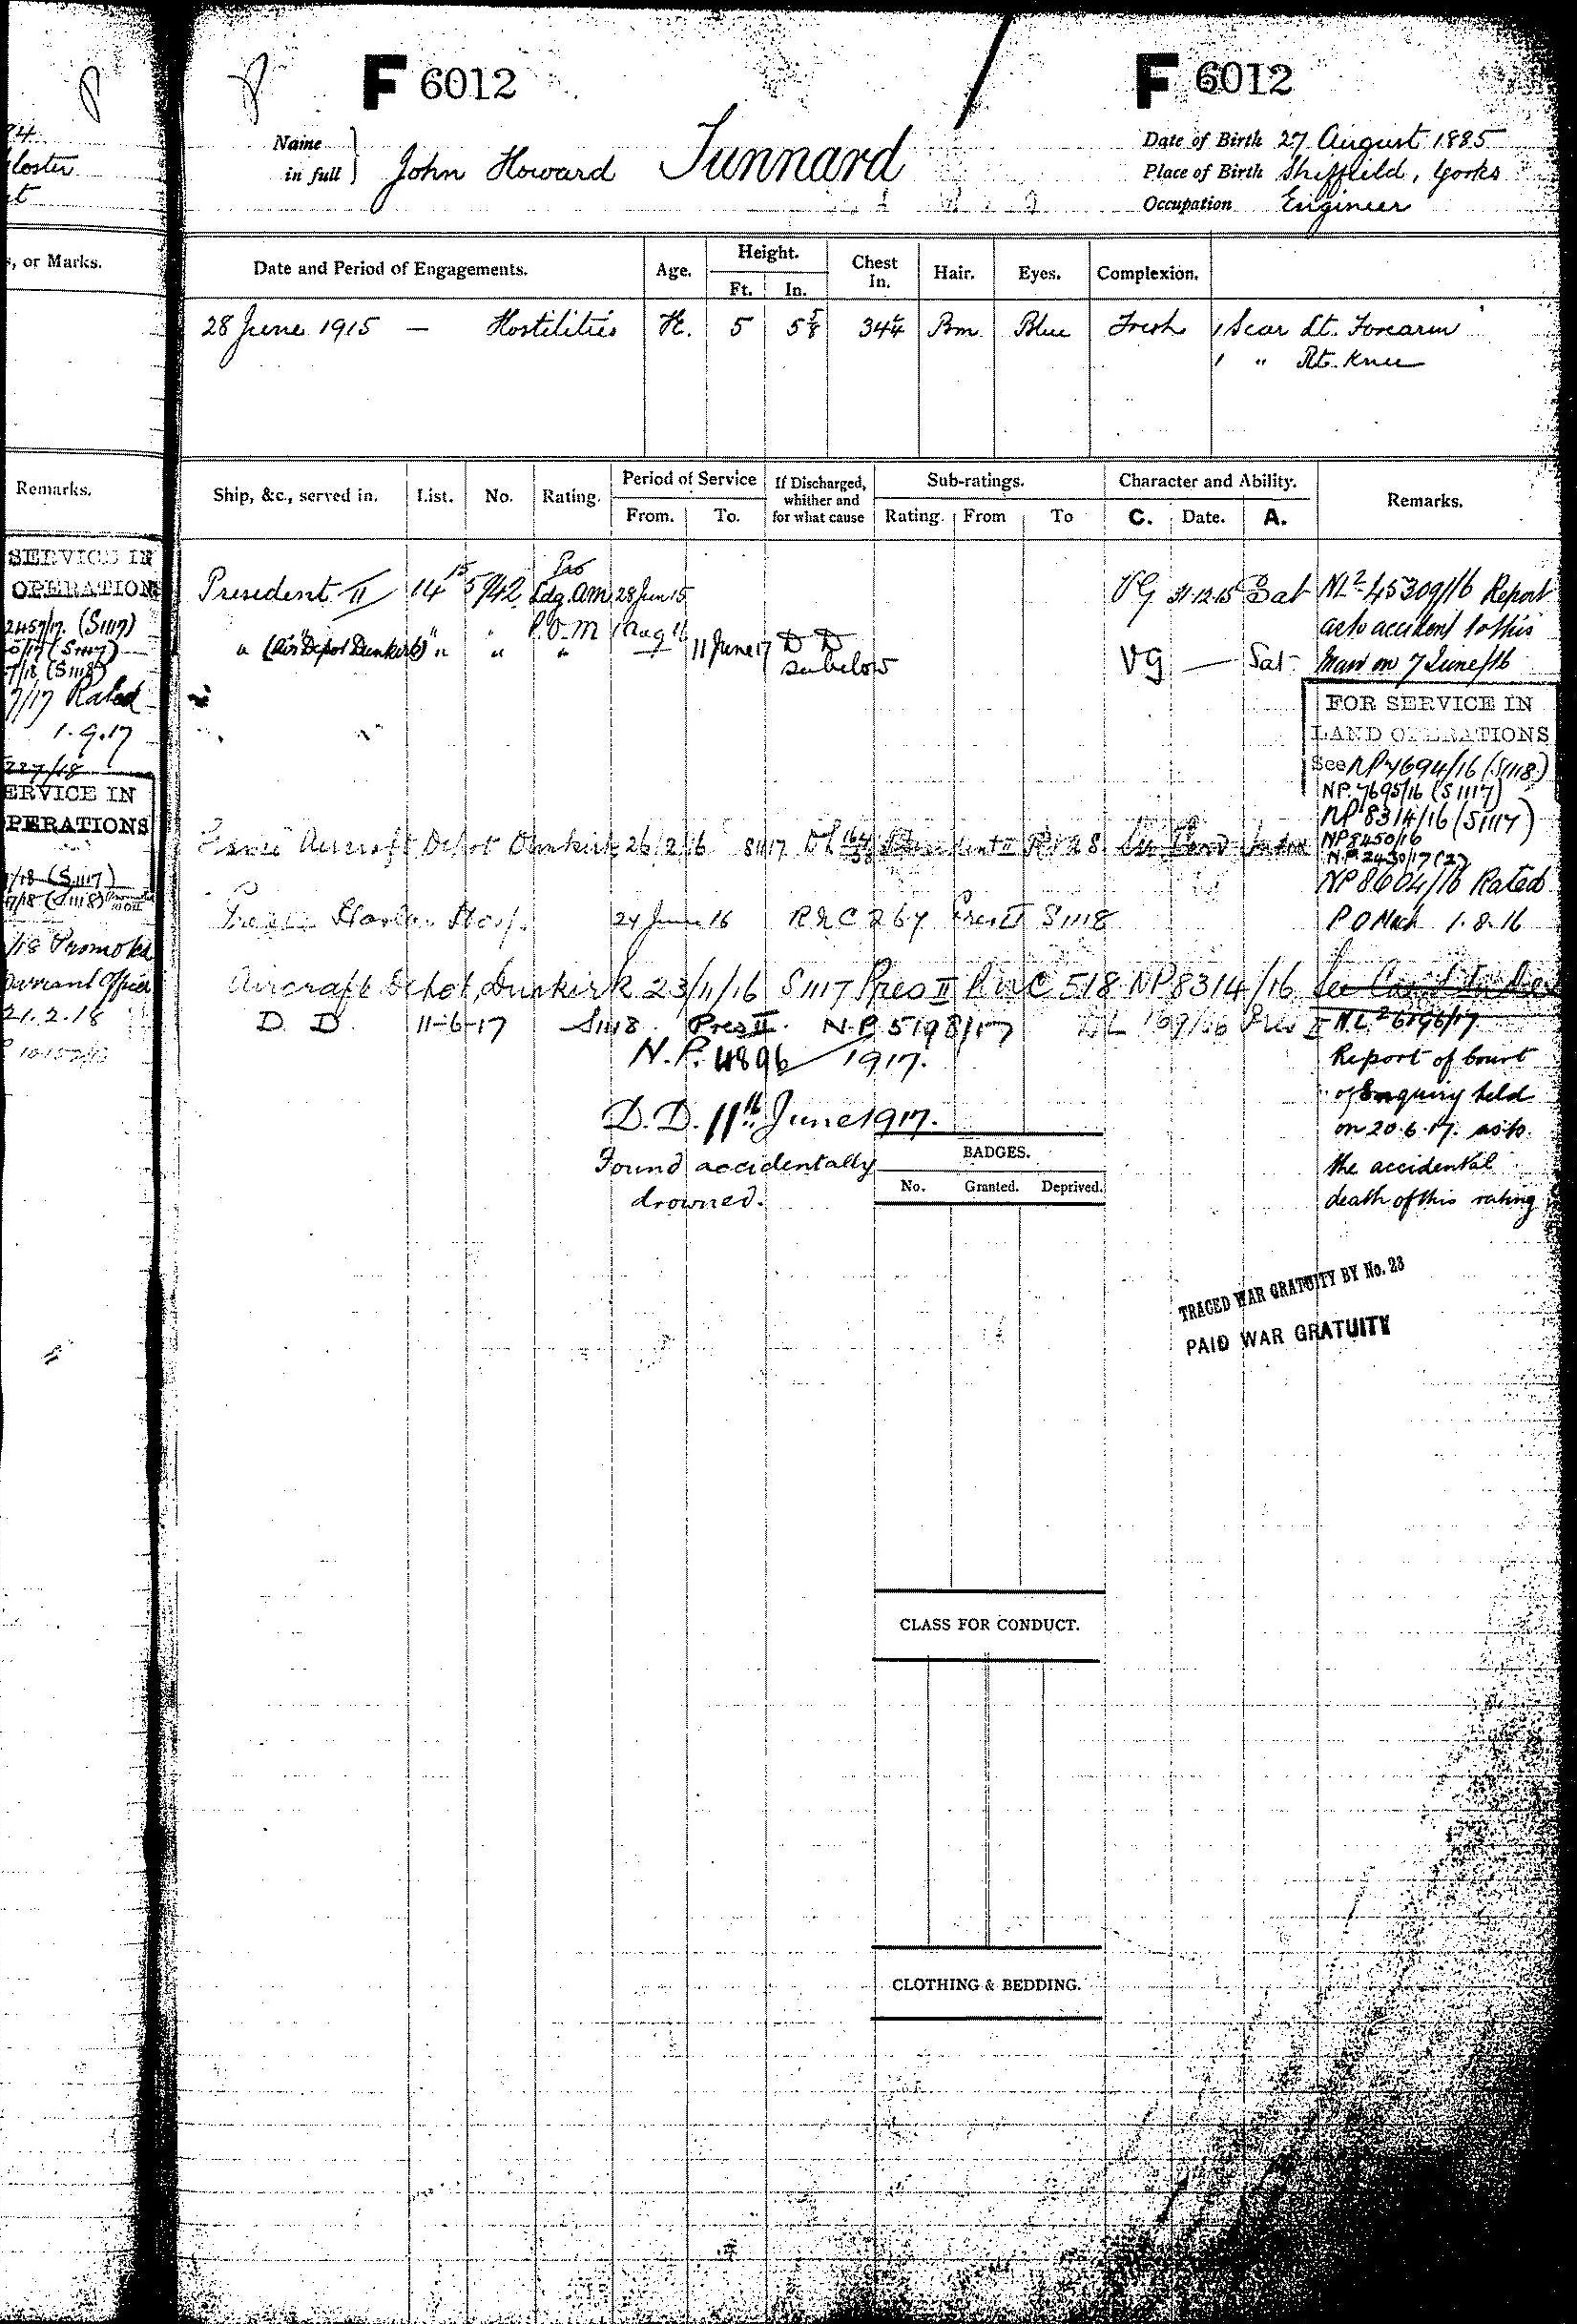 74
loster
t
s, or Marks.
Remarks.
SERVICE IN
OPERATION
2457/17. (S1117)
7/18 (S1118)
7/17 Rated
1.9.17
227/18
ERVICE IN
PERATIONS
/18 (S1117)
/18 (S1118)
/18 Promoted
Warrant Officer
21.2.18
F 6012
F 6012
Name in full } John Howard Tunnard
Date of Birth 27 August 1885
Place of Birth Sheffield, Yorks
Occupation Engineer
Date and Period of Engagements. Age. Height. Ft. In. Chest In. Hair. Eyes. Complexion.
28 June 1915 — Hostilities H. 5 5 5/8 34 Brn. Blue Fresh 1 Scar Lt. Forearm
1 " Rt. Knee
Ship, &c., served in. List. No. Rating. Period of Service From. To. If Discharged, whither and for what cause Sub-ratings. Rating. From To Character and Ability. C. Date. A. Remarks.
President II 14 15 5942 Pro Ldg. AM 28 Jun 15 VG 31.12.15 Sat NL2 45309/16 Report
" " P.O.M 1 Aug 16 as to accident to this
" (Air Depot Dunkirk) " " " 11 June 17 D D see below VG — Sat man on 7 June/16
FOR SERVICE IN
LAND OPERATIONS
See NP 7694/16 (S1118)
NP. 7695/16 (S1117)
NP 8314/16 (S1117)
Aircraft Depot Dunkirk 26/2/16 S1117 President II NP8450/16
N.P. 2430/17 (2)
NP8604/16 Rated
Haslar Hosp. 24 June 16 R&C 267 Pres II S1118 P O Mech 1.8.16
Aircraft Depot, Dunkirk 23/11/16 S1117 Pres II R&C 518 NP8314/16
D. D. 11-6-17 S1118 Pres II. N.P. 5198/17 N.L.2 6196/17
N.P. 4896/1917.
Report of Court
of Enquiry held
on 20.6.17. as to
the accidental
death of this rating
D.D. 11th June 1917.
Found accidentally
drowned.
BADGES.
No. Granted. Deprived.
TRACED WAR GRATUITY BY No. 23
PAID WAR GRATUITY
CLASS FOR CONDUCT.
CLOTHING & BEDDING.